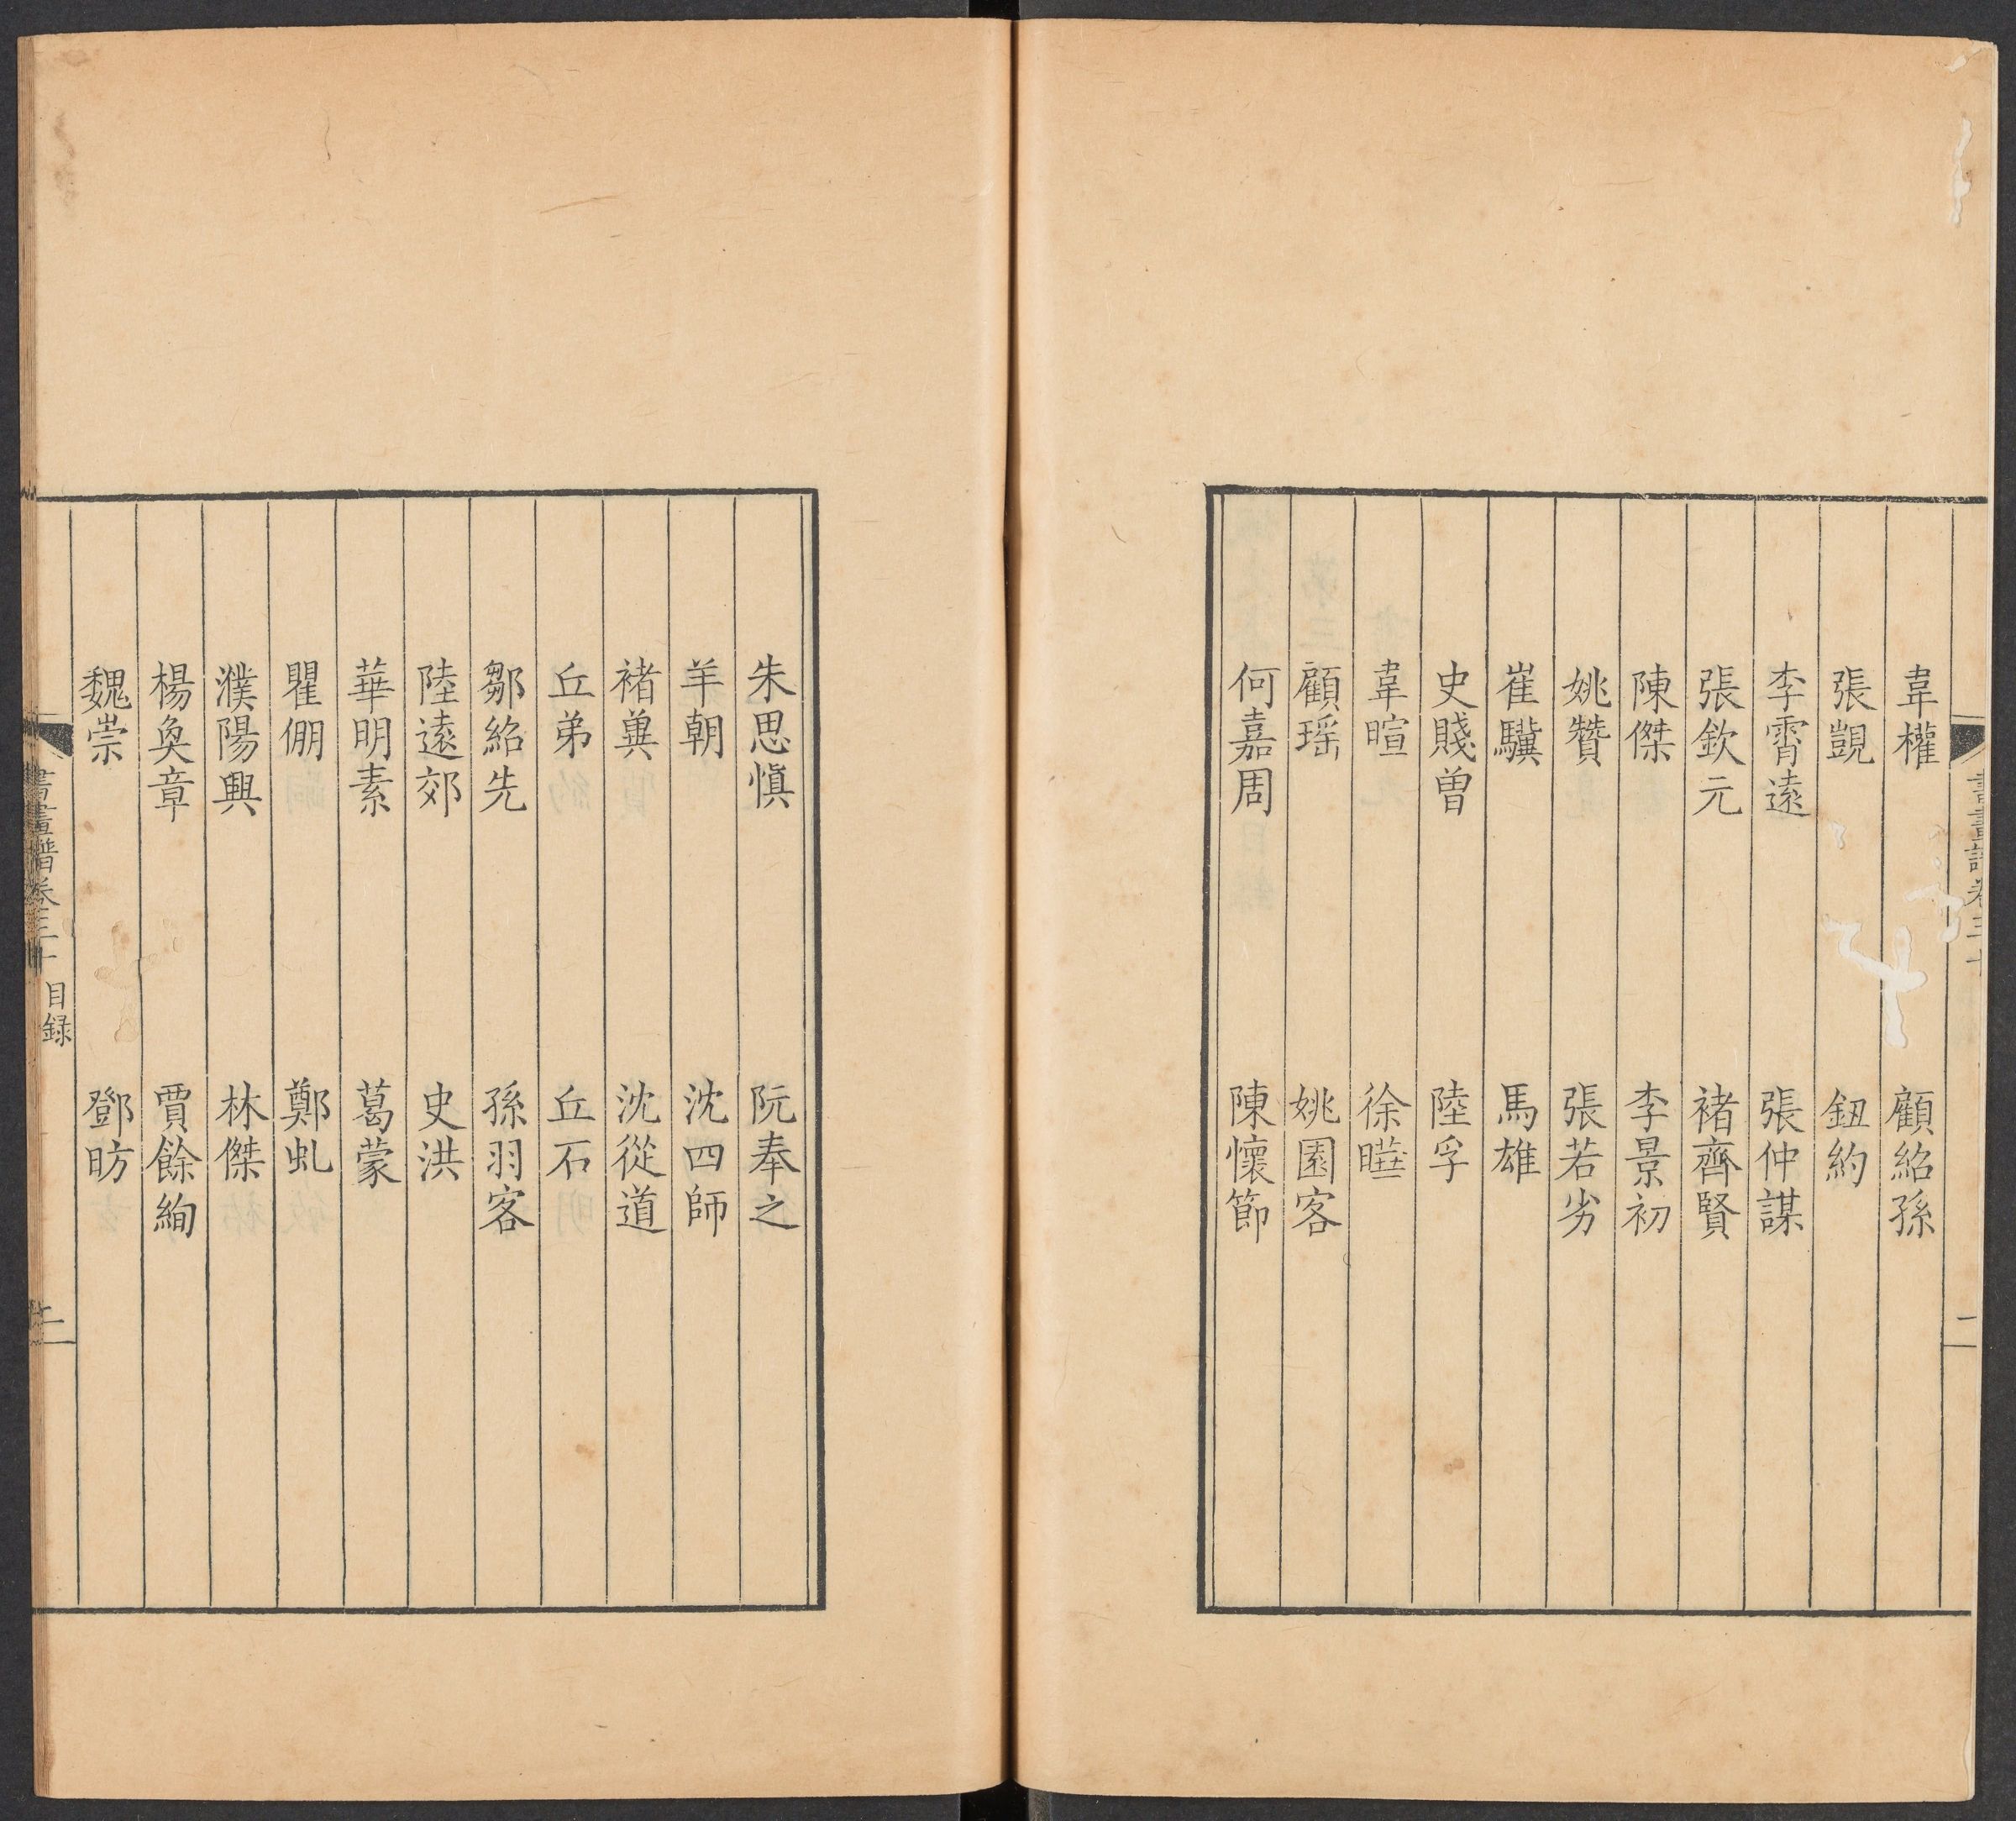 韋權　顧紹孫
張覬　鈕約
李霄遠　張仲謀
張欽元　褚齊賢
陳傑　李景初
姚贊　張若劣
崔驥　馬雄
史賤曾　陸孚
韋暄　徐曀
顧瑶　姚園客
何嘉周　陳懷節
朱思慎　阮奉之
羊朝　沈四師
褚兾　沈從道
丘弟　丘石
鄒紹先　孫羽客
陸遠郊　史洪
華明素　葛蒙
瞿倗　鄭虬
濮陽興　林傑
楊奐章　賈餘絢
魏崇　鄧昉
書畫譜卷三十　目録